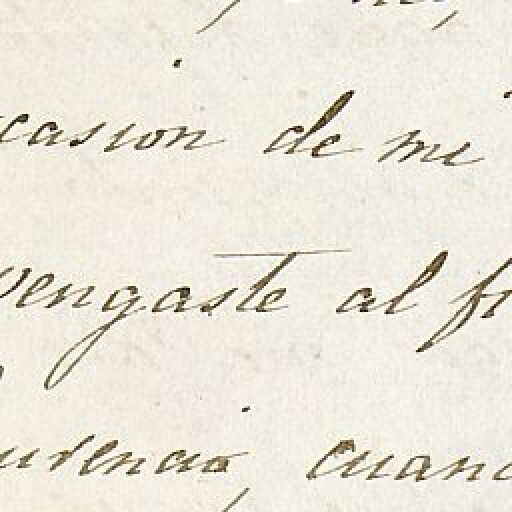 casion de mi
vengaste al fi
urencio, cuand